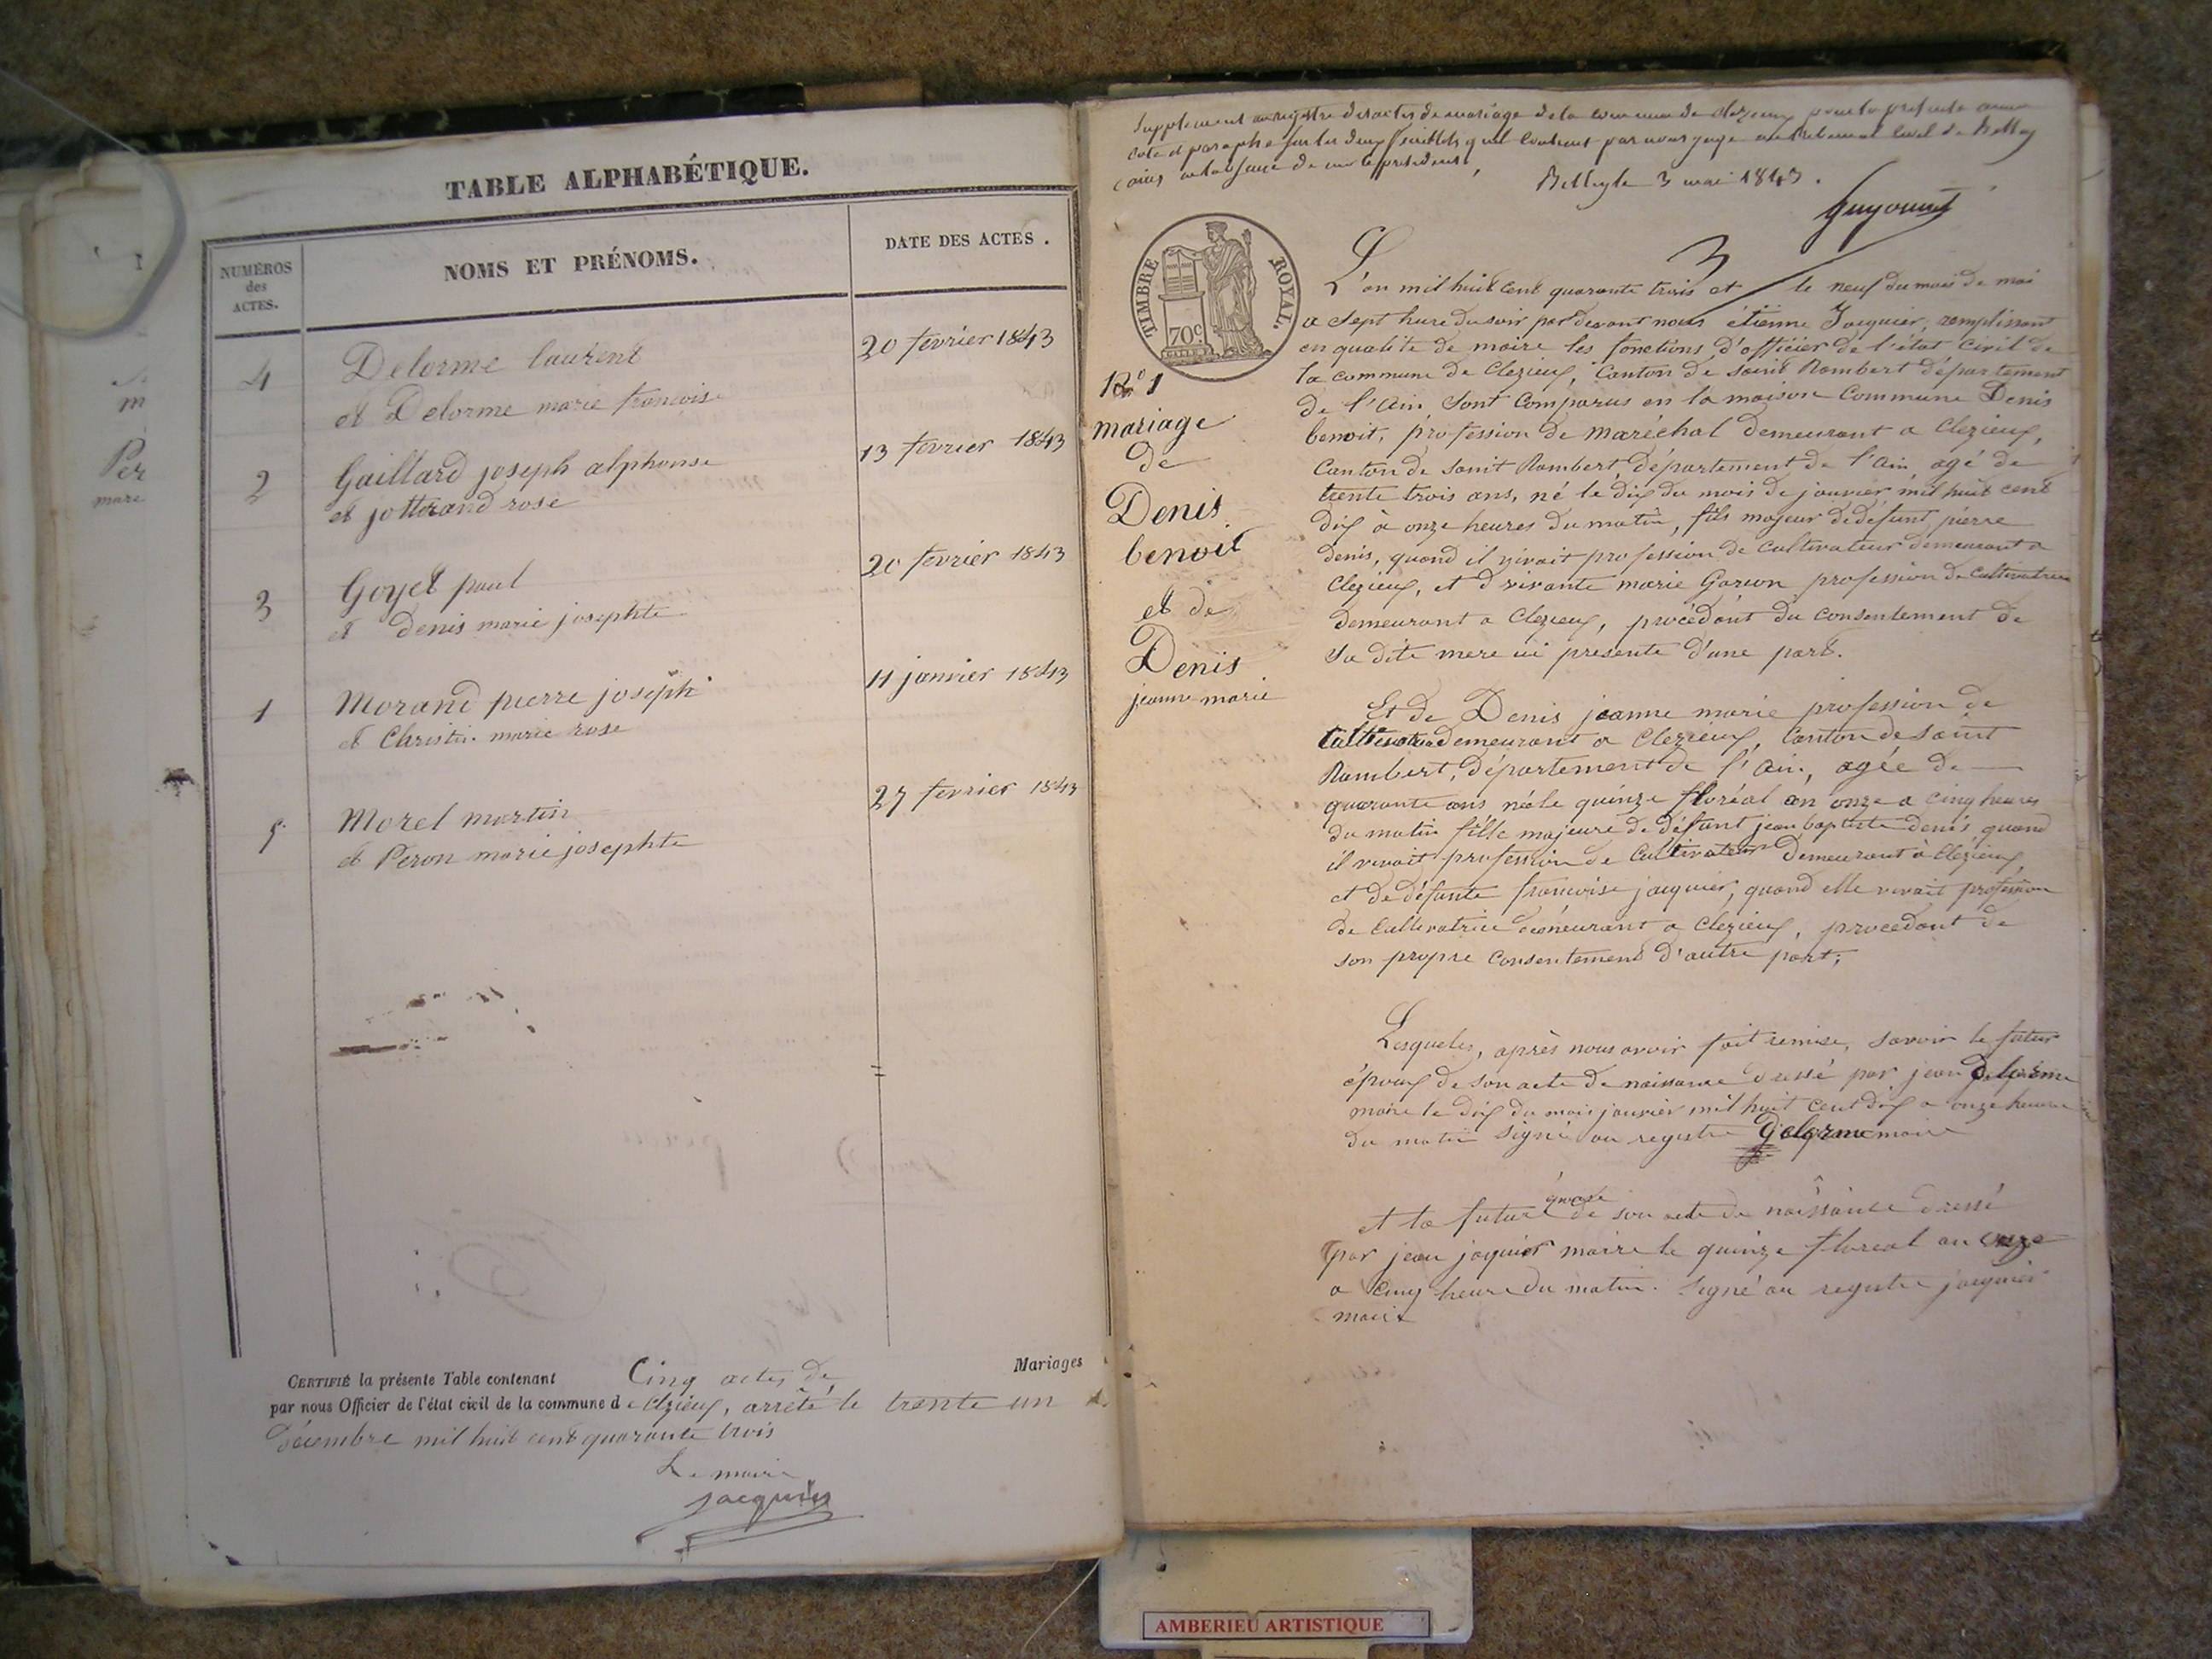 TABLE ALPHABÉTIQUE.
NUMÉROS
des
ACTES.
NOMS ET PRÉNOMS.
DATE DES ACTES.
4
Delorme laurent
et Delorme marie françoise
20 fevrier 1843
2
Gaillard joseph alphonse
et jotterand rose
13 fevrier 1843
3
Goyet paul
et denis marie josephte
20 fevrier 1843
1
Morand pierre joseph
et Christin marie rose
11 janvier 1843
5
Morel martin
et Peron marie josephte
27 fevrier 1843
CERTIFIÉ la présente Table contenant Cinq actes de Mariages
par nous Officier de l'état civil de la commune de Clezieux, arrêté le trente un
Décembre mil huit cent quarante trois
Le maire
Jacquier
Per
marie
Supplement au registre des actes de mariage de la commune de Clezieux pour la presente année
coté et paraphé sur les deux feuillets qu'il contient par nous juge au tribunal civil de Belley
en l'absence de mr le president,
Belley le 3 mai 1843.
Guyonnet
TIMBRE ROYAL.
70c
3
No 1
mariage
de
Denis
benoit
et de
Denis
jeanne marie
L'an mil huit cent quarante trois et le neuf du mois de mai
a sept hure du soir par devant nous étienne Jacquier, remplissant
en qualité de maire les fonctions d'officier de l'état civil de
la commune de Clezieux, Canton de saint Rambert département
de l'Ain, sont Comparus en la maison Commune Denis
benoit, profession de maréchal demeurant a Clezieux,
Canton de saint Rambert, département de l'Ain agé de
trente trois ans, né le dix du mois de janvier mil huit cent
dix à onze heures du matin, fils majeur de défunt pierre
denis, quand il vivait profession de Cultivateur demeurant a
Clezieux, et d vivante marie profession de Cultivatrice
demeurant a Clezieux, procédant du consentement de
sa dite mere ici presente d'une part.
Et de Denis jeanne marie profession de
Cultivatrice demeurant a Clezieux, Canton de saint
Rambert, département de l'Ain, agée de
quarante ans née le quinze floréal an onze a cinq heures
du matin fille majeure de défunt jean baptiste denis quand
il vivait profession de Cultivateur demeurant à Clezieux,
et de défunte françoise jacquier, quand elle vivait profession
de Cultivatrice demeurant a Clezieux, procedant de
son propre Consentement d'autre part;
Lesqueles, après nous avoir fait remise, savoir le futur
époux de son acte de naissance dressé par jean Delorme
maire le dix du mois janvier mil huit cent dix a onze heure
du matin signé au registre Delorme maire
et la future épouse de son acte de naissance dressé
par jean jaquier maire le quinze floreal an onze
a Cinq heure du matin. Signé au registre jacquier
maire
AMBERIEU ARTISTIQUE